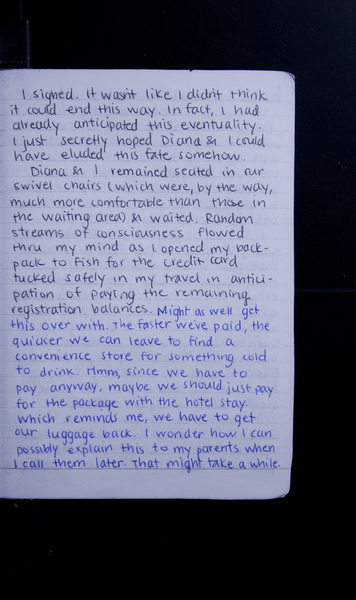 I signed. It wasn't like I didn't think
it could end this way. In fact, I had
already anticipated this eventuality.
I just secretly hoped Diana & I could
have eluded this fate somehow.
Diana & I remained seated in our
swivel chairs (which were, by the way,
much more comfortable than those in
the waiting area) & waited. Random
streams of consciousness flowed
thru my mind as I opened my back-
pack to fish for the credit card
tucked safely in my travel in antici-
pation of paying the remaining
registration balances. Might as well get
this over with. The faster we've paid, the
quicker we can leave to find a
convenience store for something cold
to drink. Hmm, since we have to
pay anyway, maybe we should just pay
for the package with the hotel stay.
Which reminds me, we have to get
our luggage back. I wonder how I can
possibly explain this to my parents when
I call them later. That might take a while.